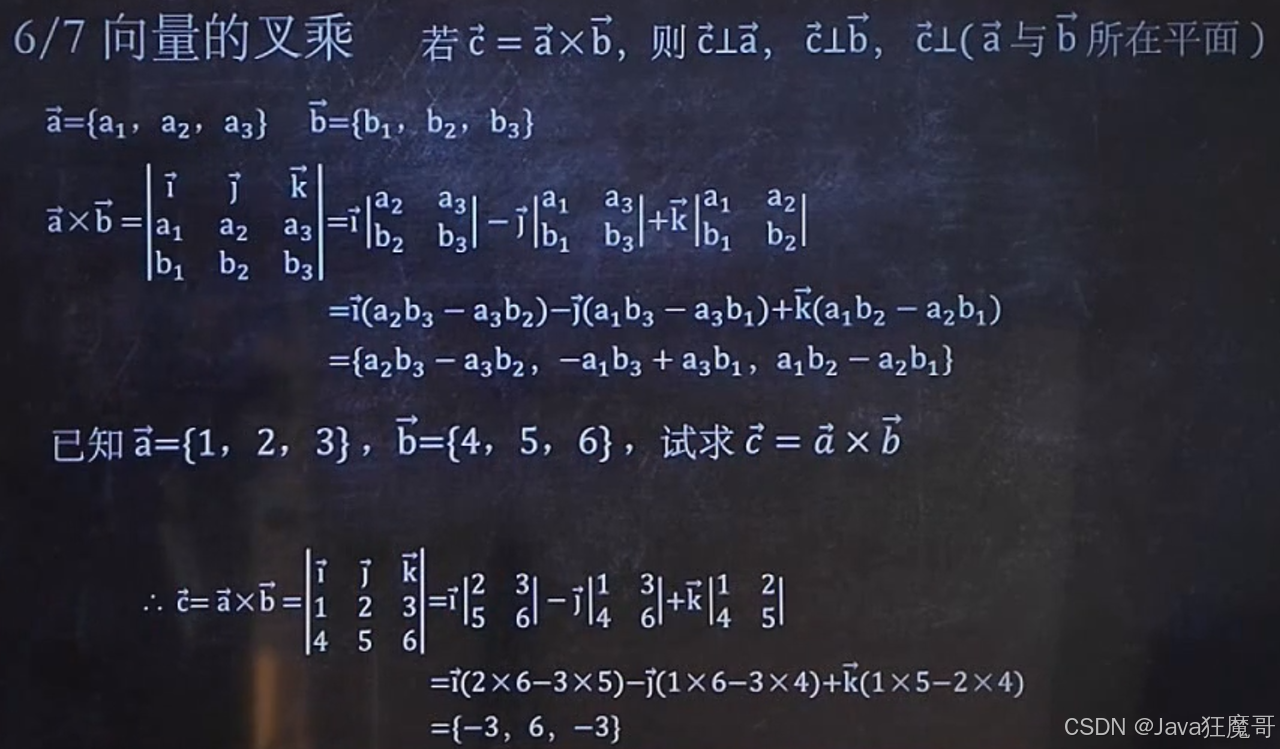 6/7 向量的叉乘 若 c⃗ = a⃗×b⃗，则 c⃗⊥a⃗，c⃗⊥b⃗，c⃗⊥( a⃗ 与 b⃗ 所在平面 )
a⃗={a₁，a₂，a₃} b⃗={b₁，b₂，b₃}
a⃗×b⃗ = |i⃗ j⃗ k⃗; a₁ a₂ a₃; b₁ b₂ b₃| = i⃗|a₂ a₃; b₂ b₃| − j⃗|a₁ a₃; b₁ b₃| + k⃗|a₁ a₂; b₁ b₂|
=i⃗(a₂b₃ − a₃b₂)−j⃗(a₁b₃ − a₃b₁)+k⃗(a₁b₂ − a₂b₁)
={a₂b₃ − a₃b₂，−a₁b₃ + a₃b₁，a₁b₂ − a₂b₁}
已知 a⃗={1，2，3}，b⃗={4，5，6}，试求 c⃗ = a⃗ × b⃗
∴ c⃗= a⃗×b⃗ = |i⃗ j⃗ k⃗; 1 2 3; 4 5 6| = i⃗|2 3; 5 6| − j⃗|1 3; 4 6| + k⃗|1 2; 4 5|
=i⃗(2×6−3×5)−j⃗(1×6−3×4)+k⃗(1×5−2×4)
={−3，6，−3}
CSDN @Java狂魔哥